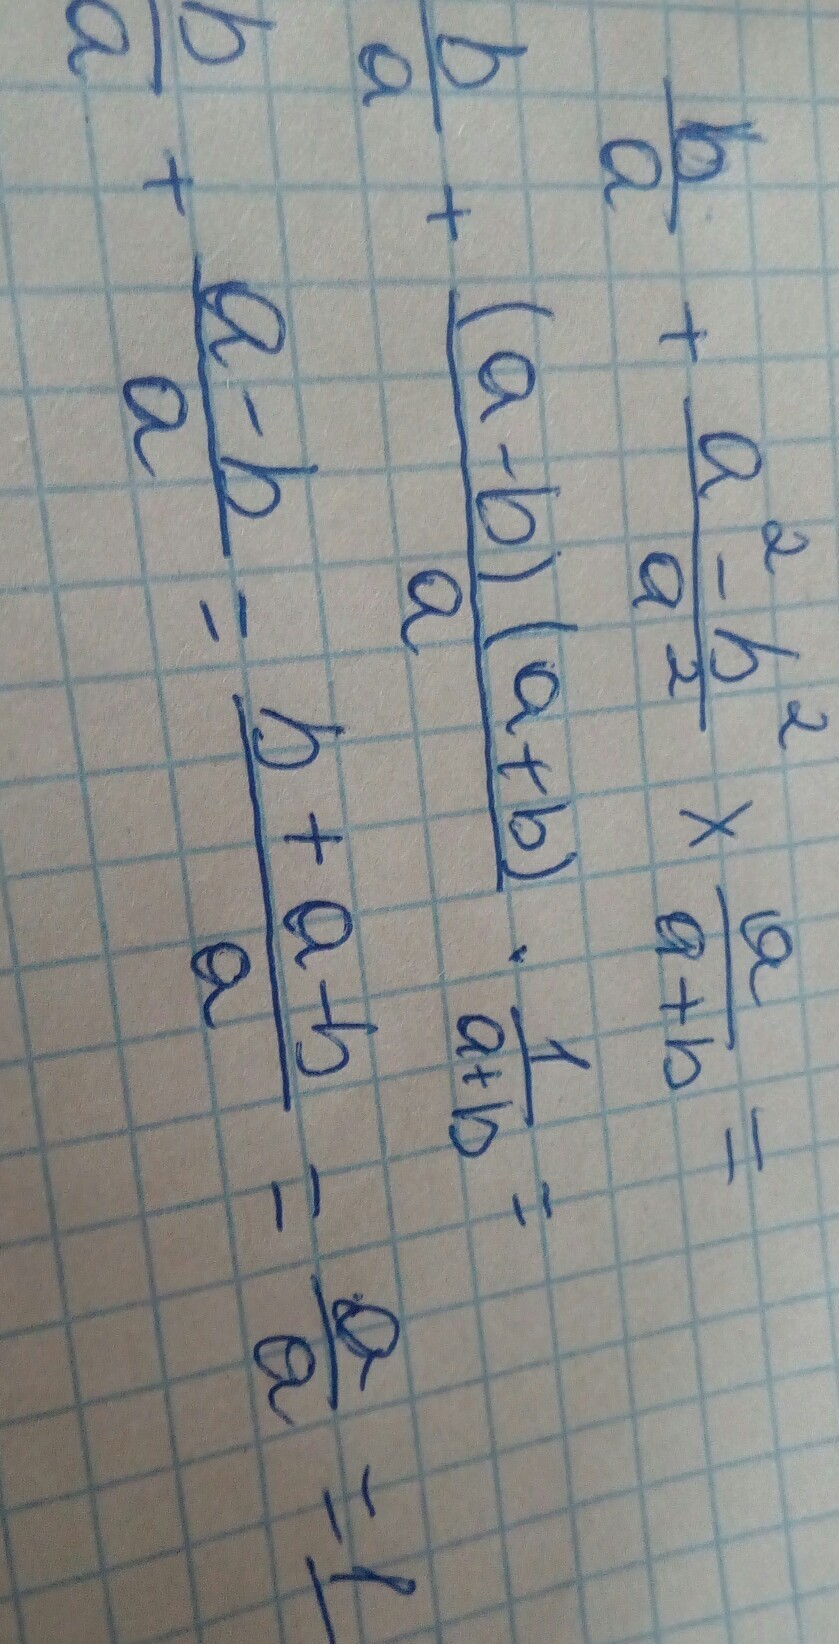 b/a + a²-b²/a² × a/a+b =
b/a + (a-b)(a+b)/a · 1/a+b =
b/a + a-b/a = b+a-b/a = a/a = 1